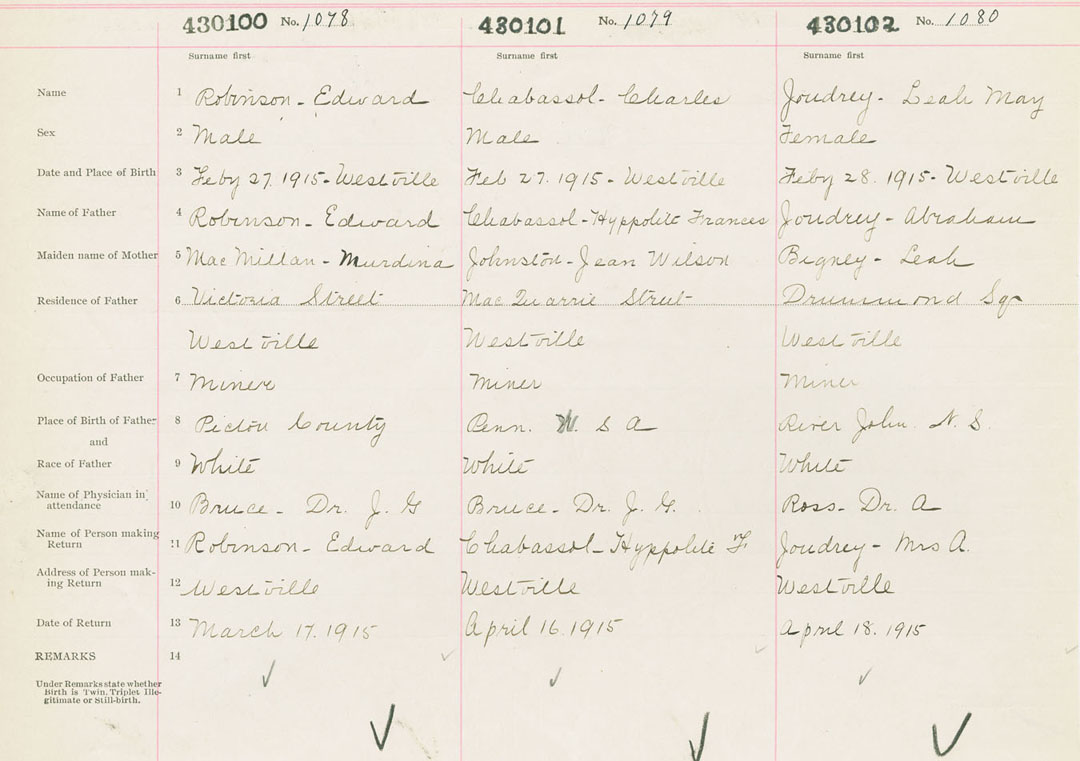 430100 No. 1078 430101 No. 1079 430102 No. 1080
Surname first Surname first Surname first
Name 1 Robinson - Edward Chabassol - Charles Joudrey - Leah May
Sex 2 Male Male Female
Date and Place of Birth 3 Feby 27. 1915 - Westville Feb 27. 1915 - Westville Feby 28. 1915 - Westville
Name of Father 4 Robinson - Edward Chabassol - Hyppolite Frances Joudrey - Abraham
Maiden name of Mother 5 MacMillan - Murdina Johnston - Jean Wilson Bigney - Leah
Residence of Father 6 Victoria Street MacQuarrie Street Drummond Sq
Westville Westville Westville
Occupation of Father 7 Miner Miner Miner
Place of Birth of Father 8 Pictou County Penn. U. S A River John. N. S.
and
Race of Father 9 White White White
Name of Physician in
attendance 10 Bruce - Dr. J. G Bruce - Dr. J. G. Ross - Dr. A
Name of Person making
Return 11 Robinson - Edward Chabassol - Hyppolite F Joudrey - Mrs A.
Address of Person mak-
ing Return 12 Westville Westville Westville
Date of Return 13 March 17. 1915 April 16. 1915 April 18. 1915
REMARKS 14
Under Remarks state whether
Birth is Twin, Triplet Ille-
gitimate or Still-birth.